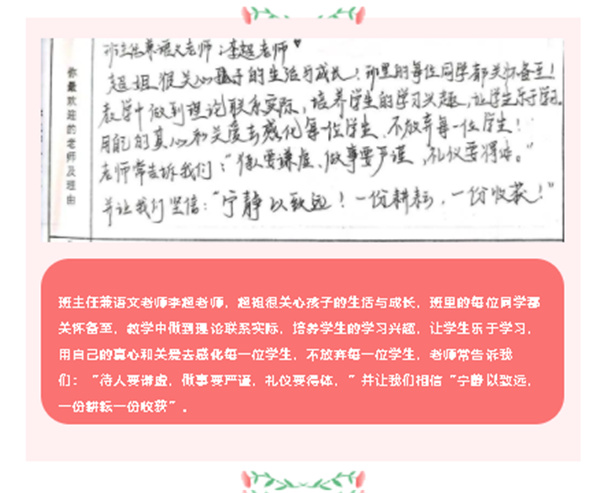 你最欢迎的老师及理由
班主任兼语文老师：李超老师
超姐很关心孩子的生活与成长！班里的每位同学都关怀备至！
教学中做到理论联系实际，培养学生的学习兴趣，让学生乐于学习。
用自己的真心和关爱去感化每一位学生，不放弃每一位学生！
老师常告诉我们：“待人要谦虚、做事要严谨，礼仪要得体。”
并让我们坚信：“宁静以致远！一份耕耘，一份收获！”
班主任兼语文老师李超老师，超姐很关心孩子的生活与成长，班里的每位同学都
关怀备至，教学中做到理论联系实际，培养学生的学习兴趣，让学生乐于学习，
用自己的真心和关爱去感化每一位学生，不放弃每一位学生，老师常告诉我
们：“待人要谦虚，做事要严谨，礼仪要得体，”并让我们相信“宁静以致远，
一份耕耘一份收获”。